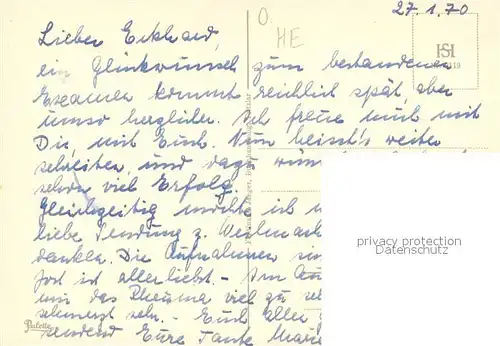 27.1.70
Lieber Eckhard,
ein Glückwunsch zum bestandenen
Examen kommt reichlich spät aber
umso herzlicher. Ich freue mich mit
Dir, mit Euch. Nun heisst's weiter
schreiten, und dazu
schon viel Erfolg.
Gleichzeitig möchte ich
liebe Sendung z. Weihnach
danken. Die Aufnahmen
ist allerliebst - Im
um das Rheuma viel zu
schmerzt sehr. - Euch allen
sendend Eure Tante
HE
HSH
privacy protection
Datenschutz
Palette